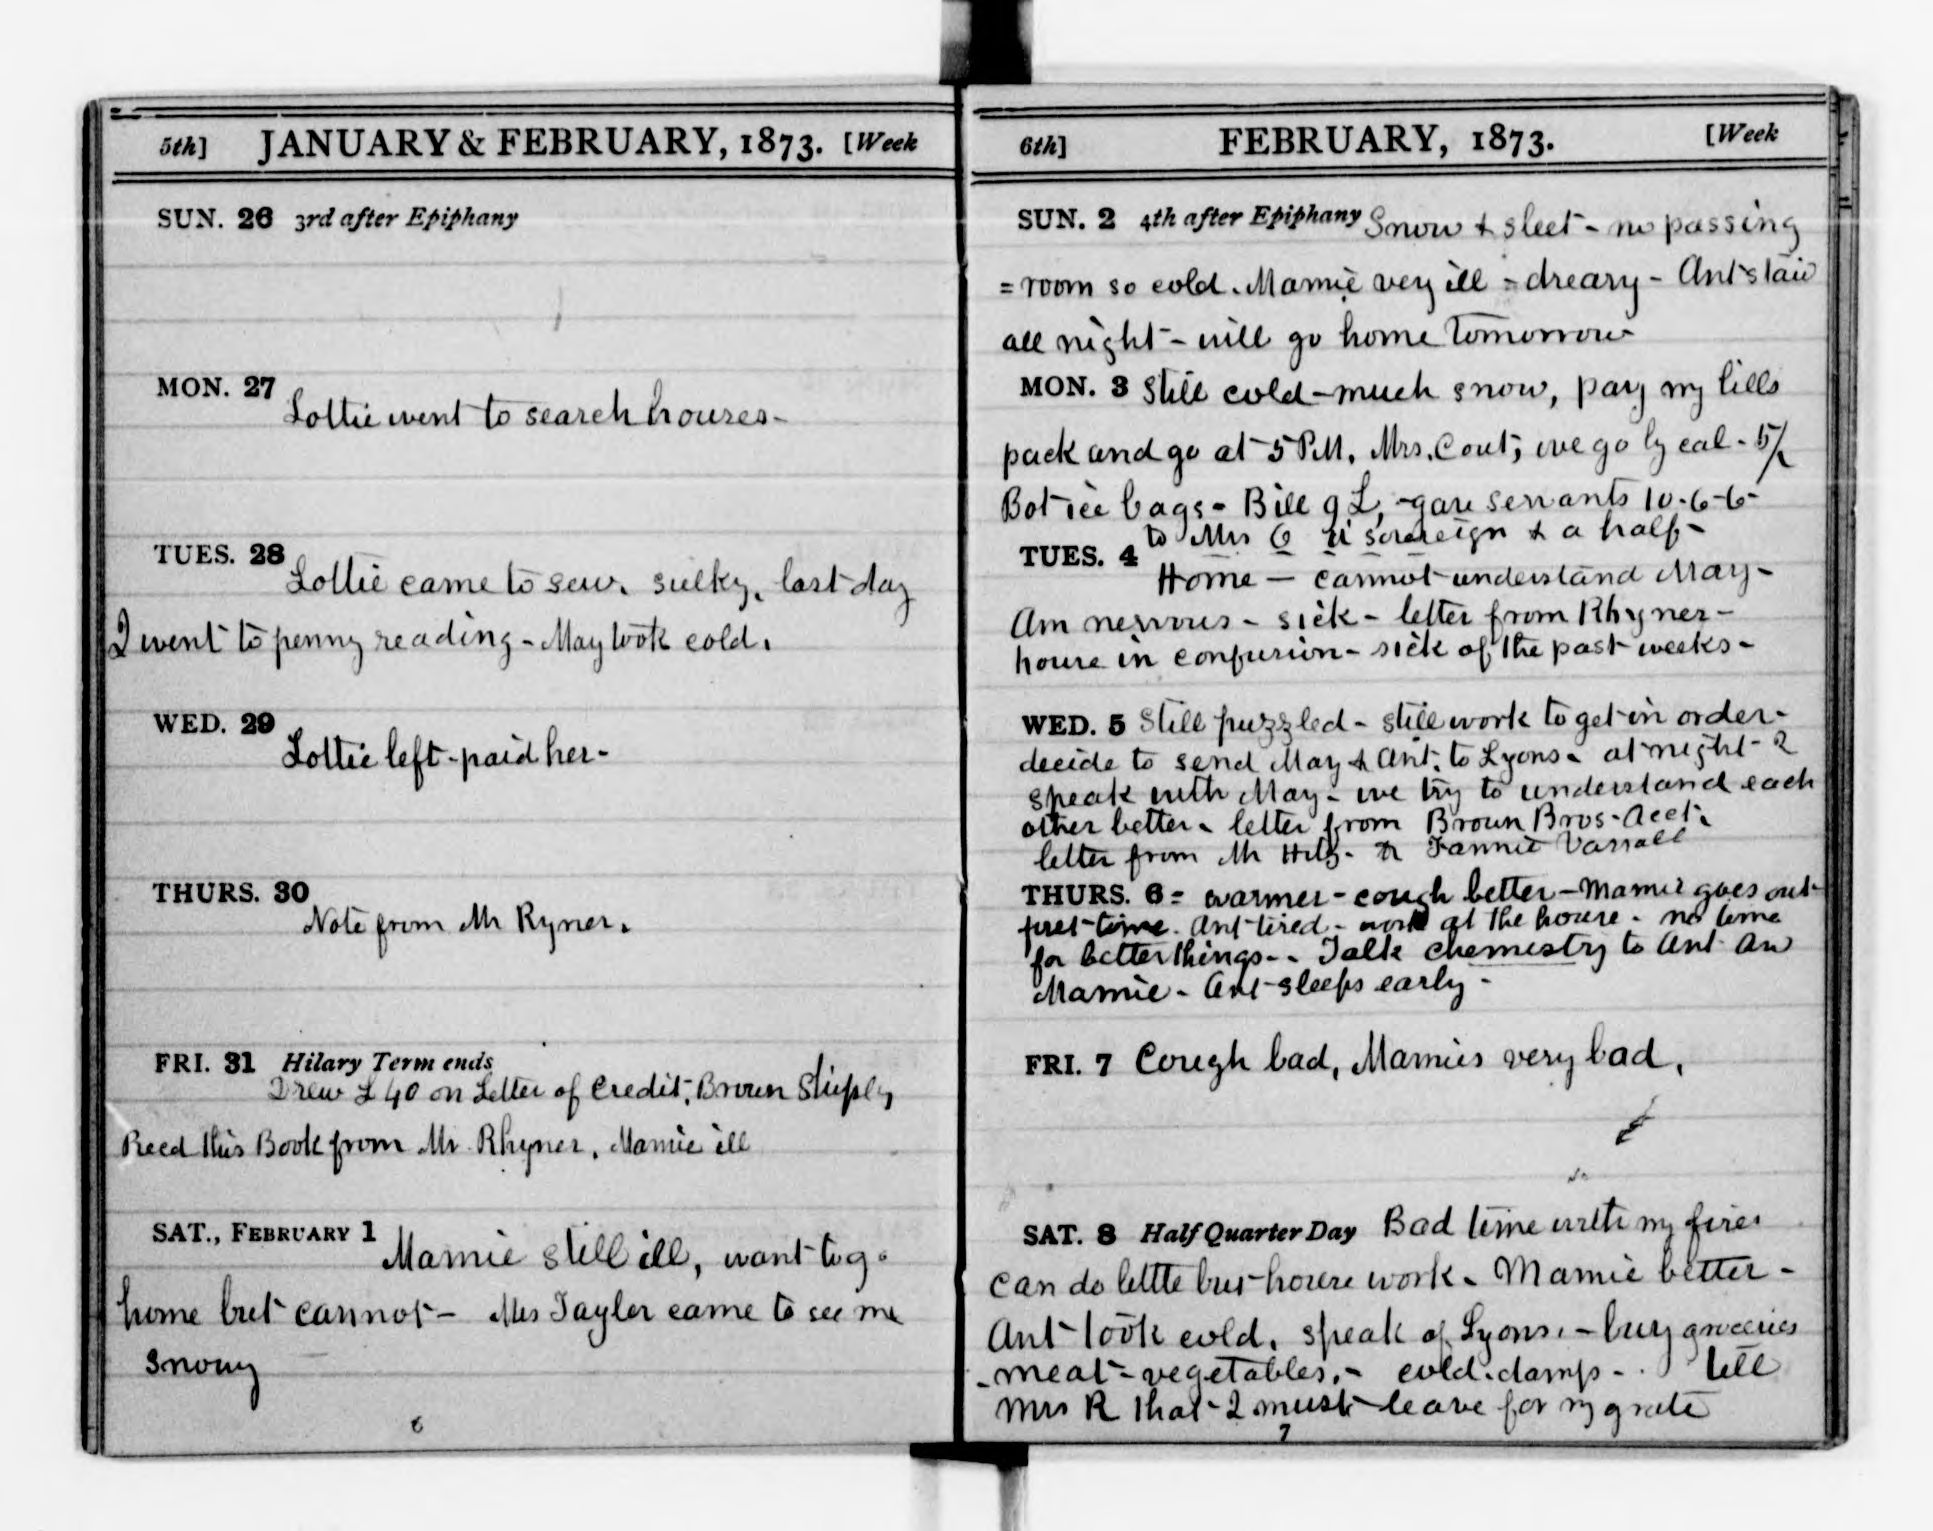 5th] JANUARY & FEBRUARY, 1873. [Week
SUN. 26 3rd after Epiphany
MON. 27
Lottie went to search houses-
TUES. 28
Lottie came to sew. sulky. last day
I went to penny reading - May took cold.
WED. 29
Lottie left - paid her -
THURS. 30
Note from Mr Ryner.
FRI. 31 Hilary Term ends
Drew £40 on Letter of Credit. Brown Shiply
Recd this Book from Mr. Rhyner. Mamie ill
SAT., FEBRUARY 1 Mamie still ill, want to go
home but cannot - Mrs Tayler came to see me
snowy
6
6th] FEBRUARY, 1873. [Week
SUN. 2 4th after Epiphany Snow & sleet - no passing
= room so cold. Mamie very ill - dreary - Ant staid
all night - will go home tomorrow
MON. 3 Still cold - much snow, pay my bills
pack and go at 5 PM. Mrs. Cout; we go by cab - 5/
Bot ice bags - Bill 9£, - gave servants 10-6-6-
to Mrs C a sovereign & a half -
TUES. 4 Home - cannot understand May -
Am nervous - sick - letter from Rhyner -
house in confusion - sick of the past weeks -
WED. 5 Still puzzled - still work to get in order -
decide to send May & Ant. to Lyons - at night I
speak with May - we try to understand each
other better - letter from Brown Bros - Acct.
letter from Mr - Fannie Varrall
THURS. 6 = warmer - cough better - Mamie goes out
first time. Ant tired - work at the house - no time
for better things - - Talk chemistry to Ant an
Mamie - Ant sleeps early -
FRI. 7 Cough bad, Mamies very bad,
SAT. 8 Half Quarter Day Bad time with my fire.
Can do little but house work - Mamie better -
Ant took cold. speak of Lyons. - buy groceries
- meat - vegetables. - cold. damp - . tell
Mrs R that I must leave for my grate
7